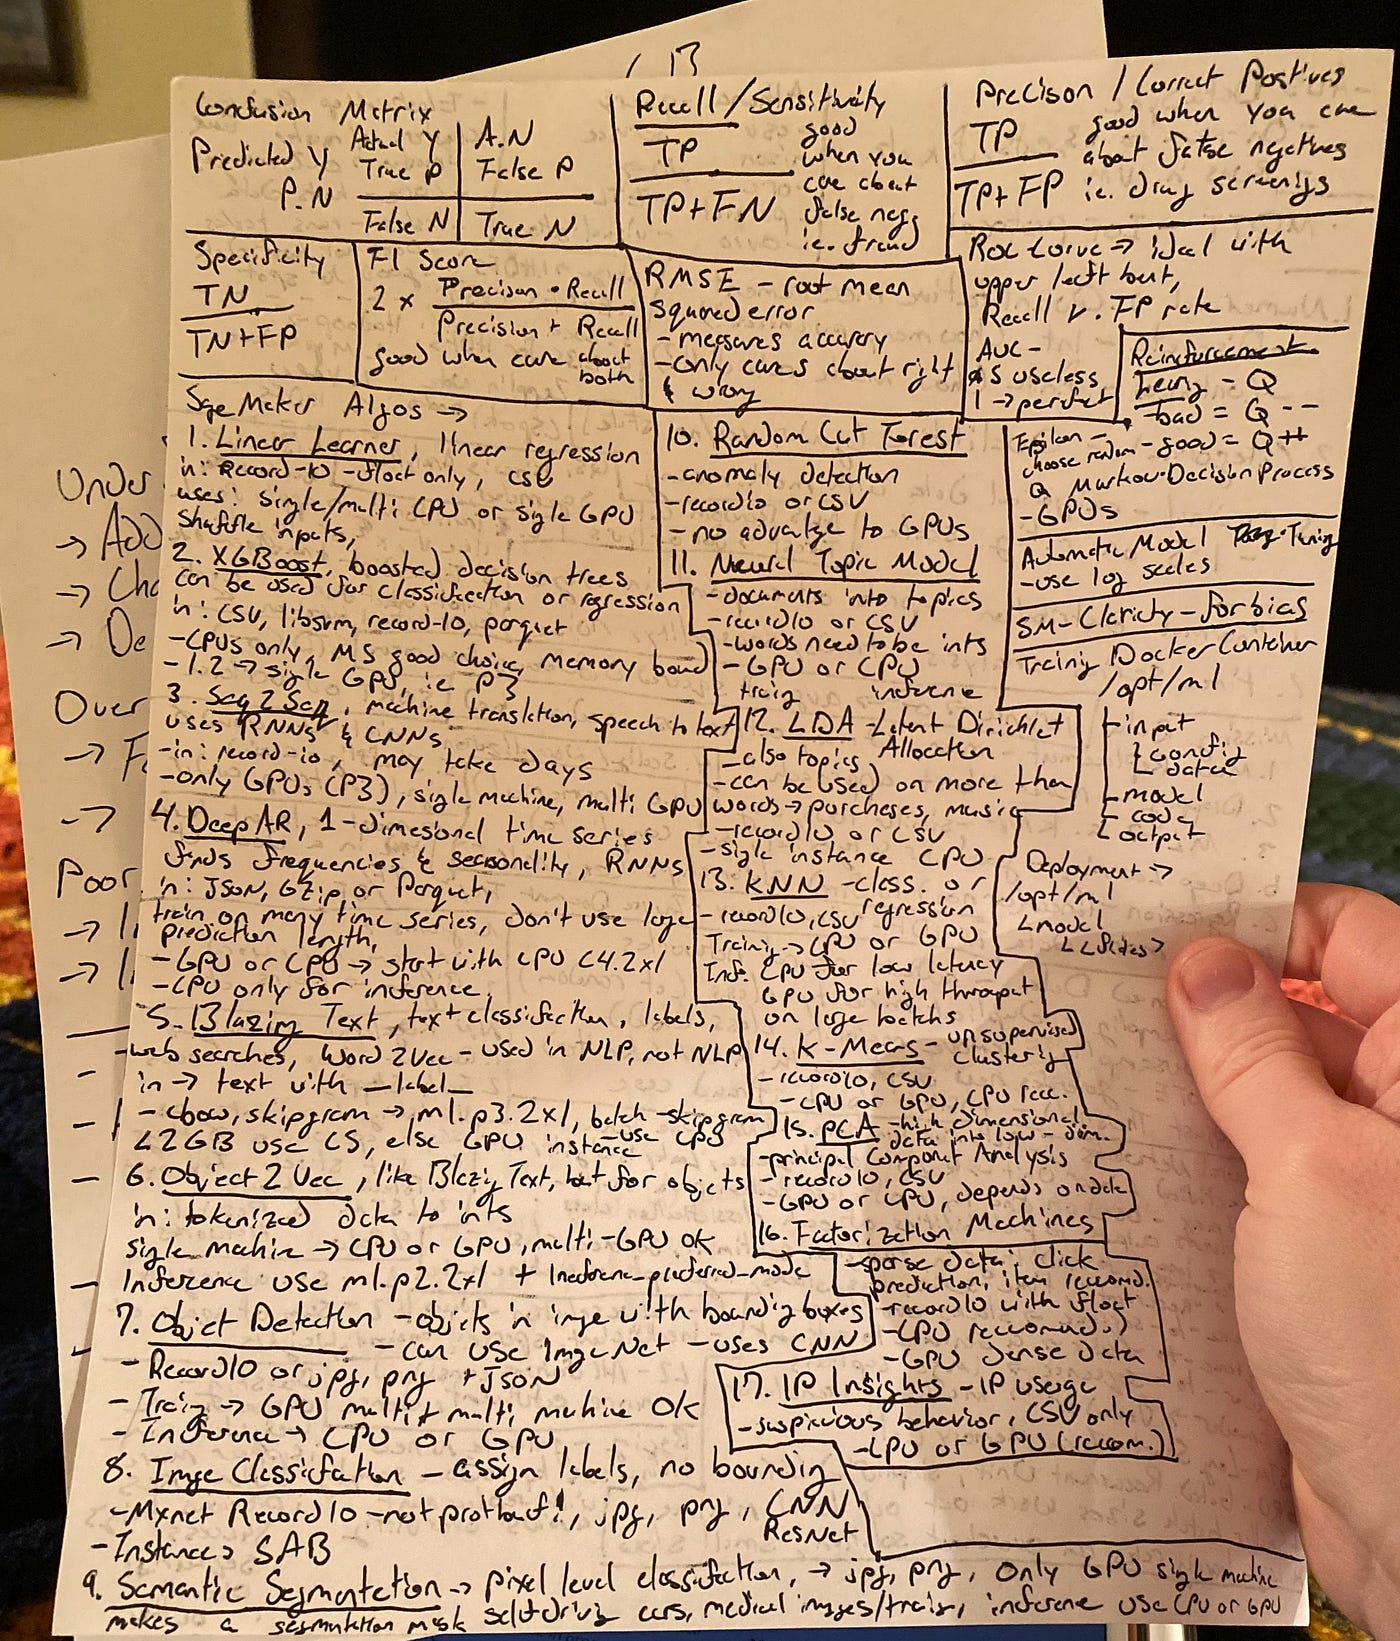 Confusion Matrix
Actual Y | A.N
Predicted Y True P | False P
P.N False N | True N
Recall / Sensitivity
TP
TP + FN
good
when you
care about
false neg,
i.e. fraud
Precison / Correct Positives
TP
TP + FP
good when you care
about false negatives
i.e. drug screenings
Specificity
TN
TN + FP
F1 Score
2 x Precison • Recall
Precision + Recall
good when care about
both
RMSE - root mean
squared error
- measures accuracy
- only cares about right
& wrong
ROC Curve → ideal with
upper left bent,
Recall v. FP rate
AUC -
.5 useless,
1 → perfect
Reinforcement
Learing - Q
- bad = Q --
Epsilon -
choose random - good = Q++
Q Markov Decision Process
- GPUs
Automatic Model Tuning
- use log scales
SM - Clarity - for bias
Training Docker Container
/opt/ml
input
config
data
model
code
output
Deployment →
/opt/ml
model
SageMaker Algos →
1. Linear Learner, linear regression
in: Record-IO - float only, CSV
uses: single/multi CPU or sigle GPU
shuffle inputs,
2. XGBoost, boosted decision trees
can be used for classification or regression
in: CSV, libsvm, record-IO, parquet
- CPUs only, M5 good choice, memory bound
- 1.2 → single GPU, ie P3
3. Seq 2 Seq, machine translation, speech to text
uses RNNs & CNNs
- in: record-io, may take days
- only GPUs (P3), sigle machine, multi GPU
4. DeepAR, 1-dimesional time series
finds frequencies & seasonality, RNNs
in: JSON, Gzip or Parquet,
train on many time series, don't use large
prediction length,
- GPU or CPU → start with CPU C4.2xl
- CPU only for inference
5. Blazing Text, text classifiction, labels,
- web searches, Word 2Vec - used in NLP, not NLP
in → text with __label__
- cbow, skipgram → ml.p3.2xl, batch-skipgram
use CPU
<2GB use C5, else GPU instance
6. Object 2 Vec, like Blazing Text, but for objects
in: tokenized data to ints
sigle machine → CPU or GPU, multi-GPU OK
Inference use ml.p2.2xl + Inference_preferred_mode
7. Object Detection - objects in image with bounding boxes
- can use ImageNet - uses CNN
- RecordIO or jpg, png + JSON
- Training → GPU multi + multi machine OK
- Inference → CPU or GPU
8. Image Classifiction - assign labels, no bounding
- Mxnet RecordIO - not protobuf!, jpg, png, CNN
ResNet
- Instances SAB
9. Semantic Segmentation → pixel level classifiction, → jpg, png, only GPU single machine
makes a segmentation mask self driving cars, medical images/trains, inference use CPU or GPU
10. Random Cut Forest
- anomaly detection
- recordIO or CSV
- no advantge to GPUs
11. Neural Topic Model
- documents into topics
- recordIO or CSV
- words need to be ints
- GPU or CPU
training inference
12. LDA - Latent Dirichlet
Allocation
- also topics
- can be used on more than
words → purchases, music
- recordIO or CSV
- sigle instance CPU
13. KNN - class. or
regression
- recordIO, CSV
Training → CPU or GPU
Inf: CPU for low latency
GPU for high throuput
on large batchs
14. K-Means - unsupervised
clustering
- recordIO, CSV
- CPU or GPU, CPU rec.
15. PCA - high dimensional
data into low-dim.
- principal Component Analysis
- recordIO, CSV
- GPU or CPU, depends on data
16. Factorization Machines
- sparse data, click
prediction, item reccomd.
- recordIO with float
- CPU reccomnd.
- GPU dense data
17. IP Insights - IP useage
- suspicious behavior, CSV only
- CPU or GPU (reccom.)
Under
→ Add
→ Cha
→ De
Over
→ F
→
Poor
→ I
→ I